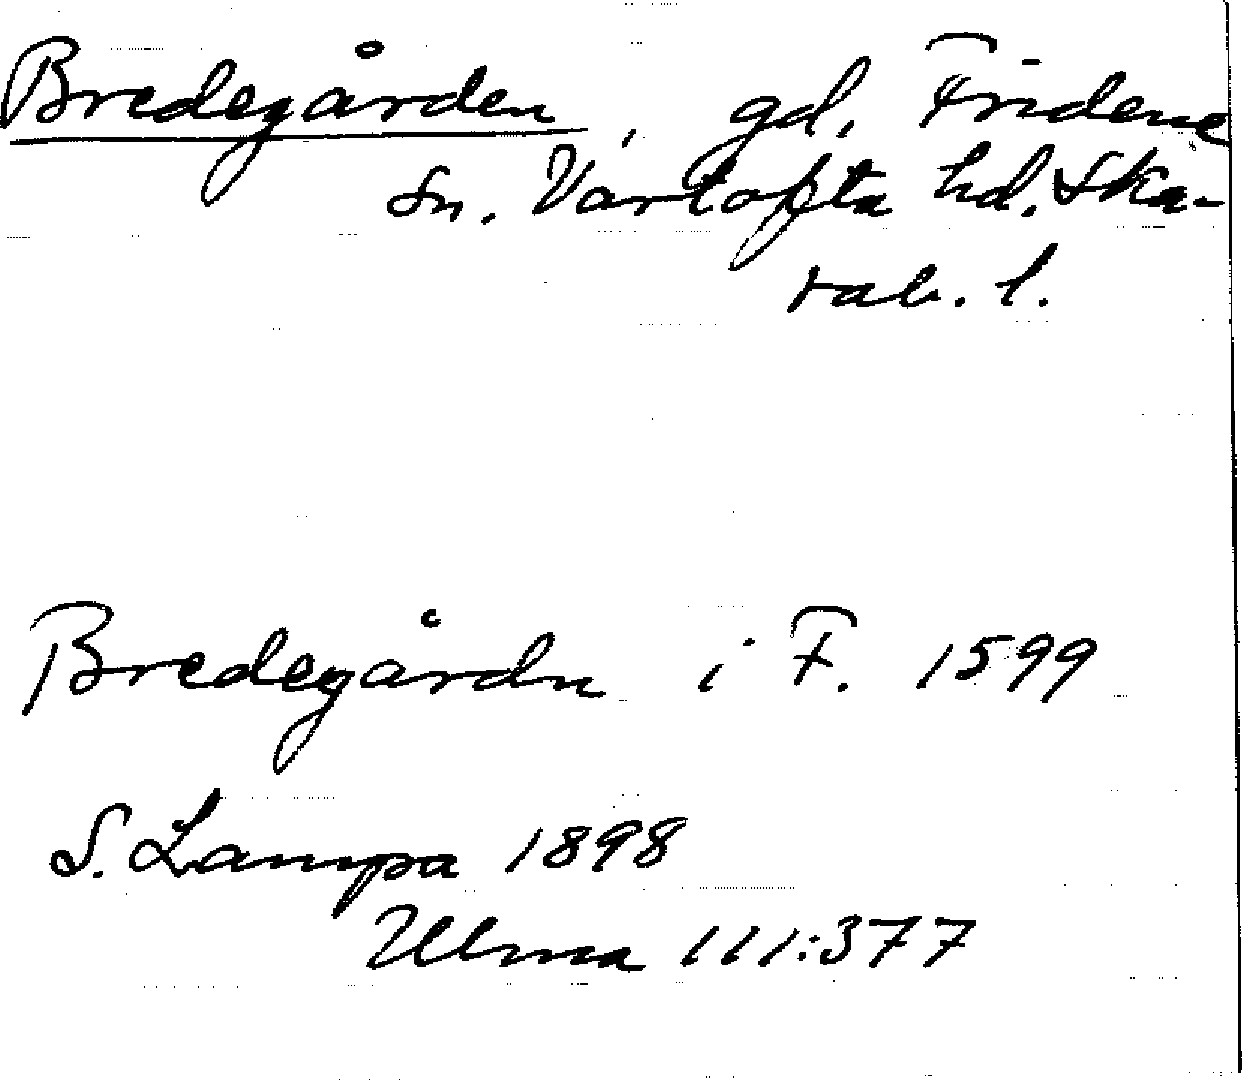 Bredegården, gd. Fridene
sn. Vartofta hd. Ska-
rab. l.
Bredegårdn i F. 1599
S. Lampa 1898
Ulma 111:377